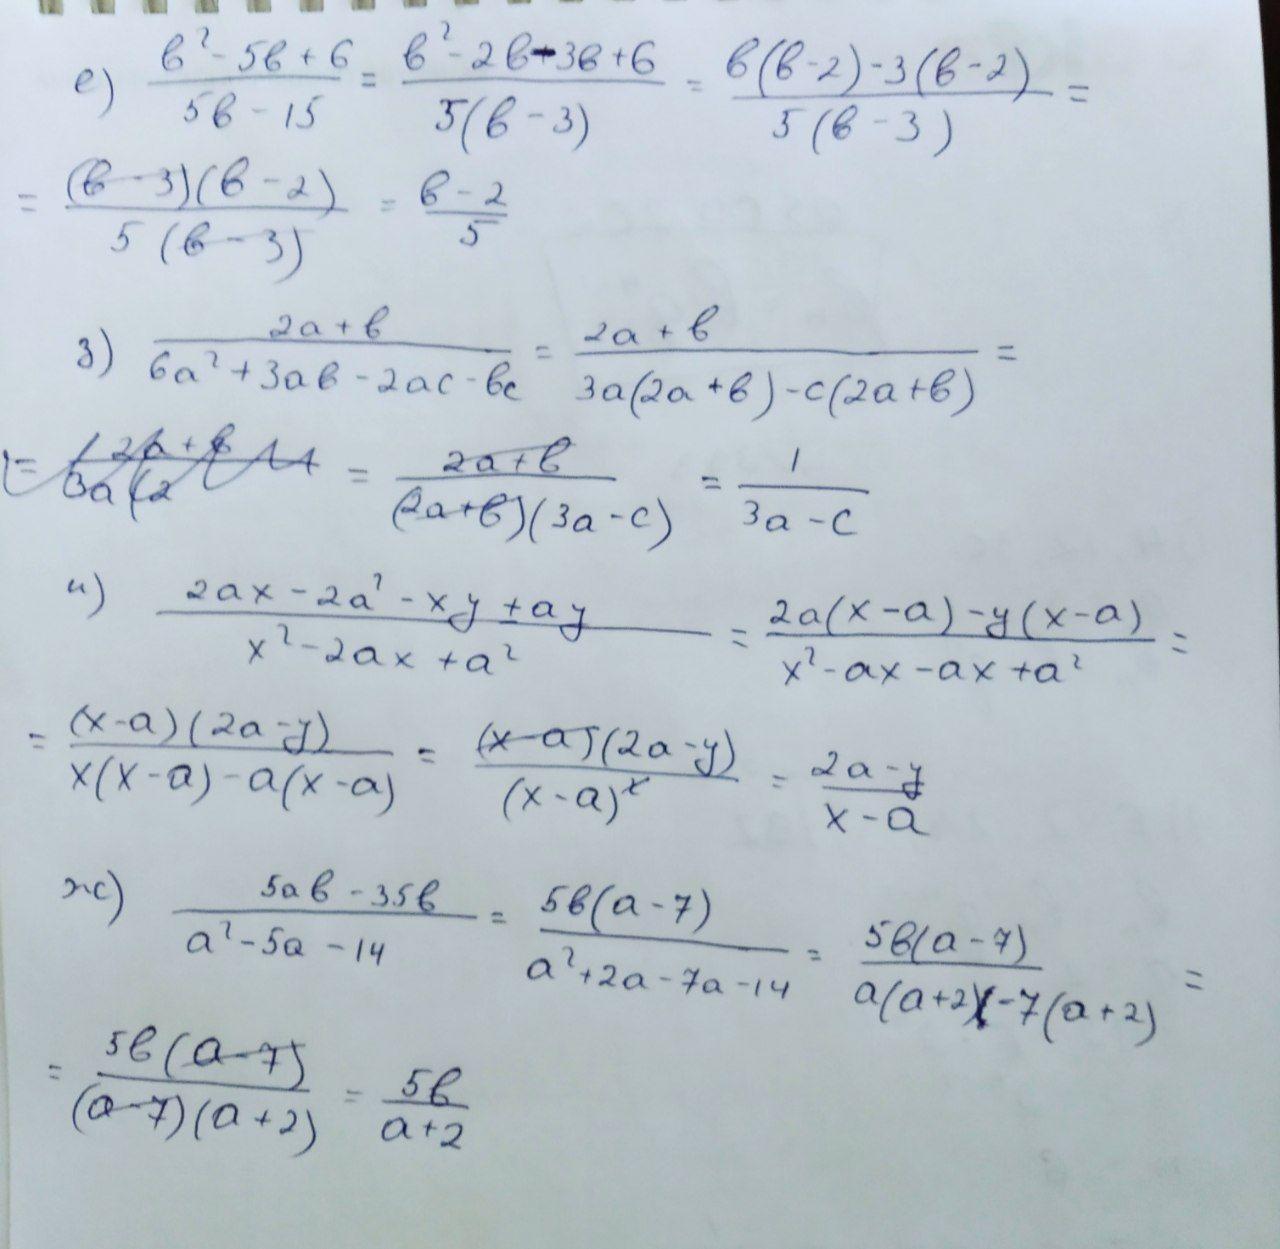 е) (в² - 5в + 6)/(5в - 15) = (в² - 2в - 3в + 6)/(5(в - 3)) = (в(в - 2) - 3(в - 2))/(5(в - 3)) =
= ((в - 3)(в - 2))/(5(в - 3)) = (в - 2)/5
з) (2a + в)/(6a² + 3aв - 2ac - вc) = (2a + в)/(3a(2a + в) - c(2a + в)) =
= (2a + в)/((2a + в)(3a - c)) = 1/(3a - c)
и) (2ax - 2a² - xy + ay)/(x² - 2ax + a²) = (2a(x - a) - y(x - a))/(x² - ax - ax + a²) =
= ((x - a)(2a - y))/(x(x - a) - a(x - a)) = ((x - a)(2a - y))/(x - a)² = (2a - y)/(x - a)
ж) (5aв - 35в)/(a² - 5a - 14) = (5в(a - 7))/(a² + 2a - 7a - 14) = (5в(a - 7))/(a(a + 2) - 7(a + 2)) =
= (5в(a - 7))/((a - 7)(a + 2)) = 5в/(a + 2)